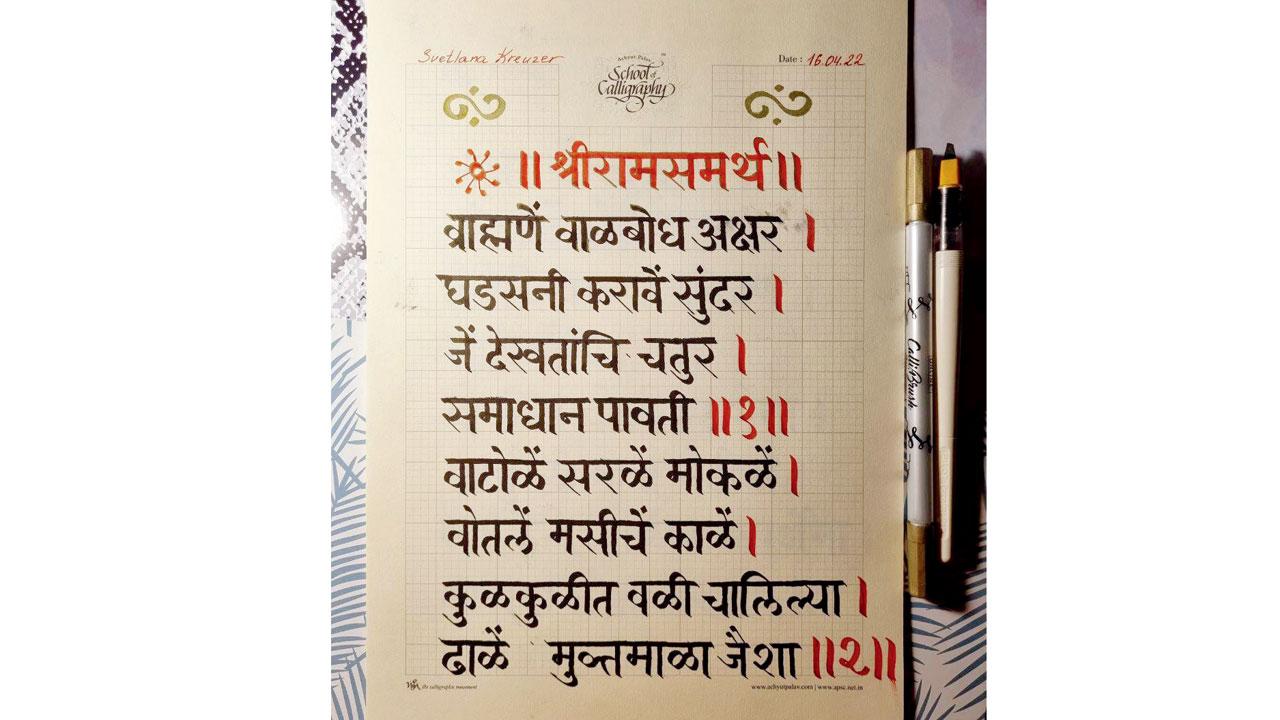 Svetlana Kreuzer
Achyut Palav
School of
Calligraphy
Date : 16.04.22
॥ श्रीरामसमर्थ ॥
व्राह्मणें वाळबोध अक्षर ।
घडसनी करावें सुंदर ।
जें देखतांचि चतुर ।
समाधान पावती ॥१॥
वाटोळें सरळें मोकळें ।
वोतलें मसीचें काळें ।
कुळकुळीत वळी चालिल्या ।
ढाळें मुक्तमाळा जैशा ॥२॥
the calligraphic movement
www.achyutpalav.com | www.apsc.net.in
CalliBrush